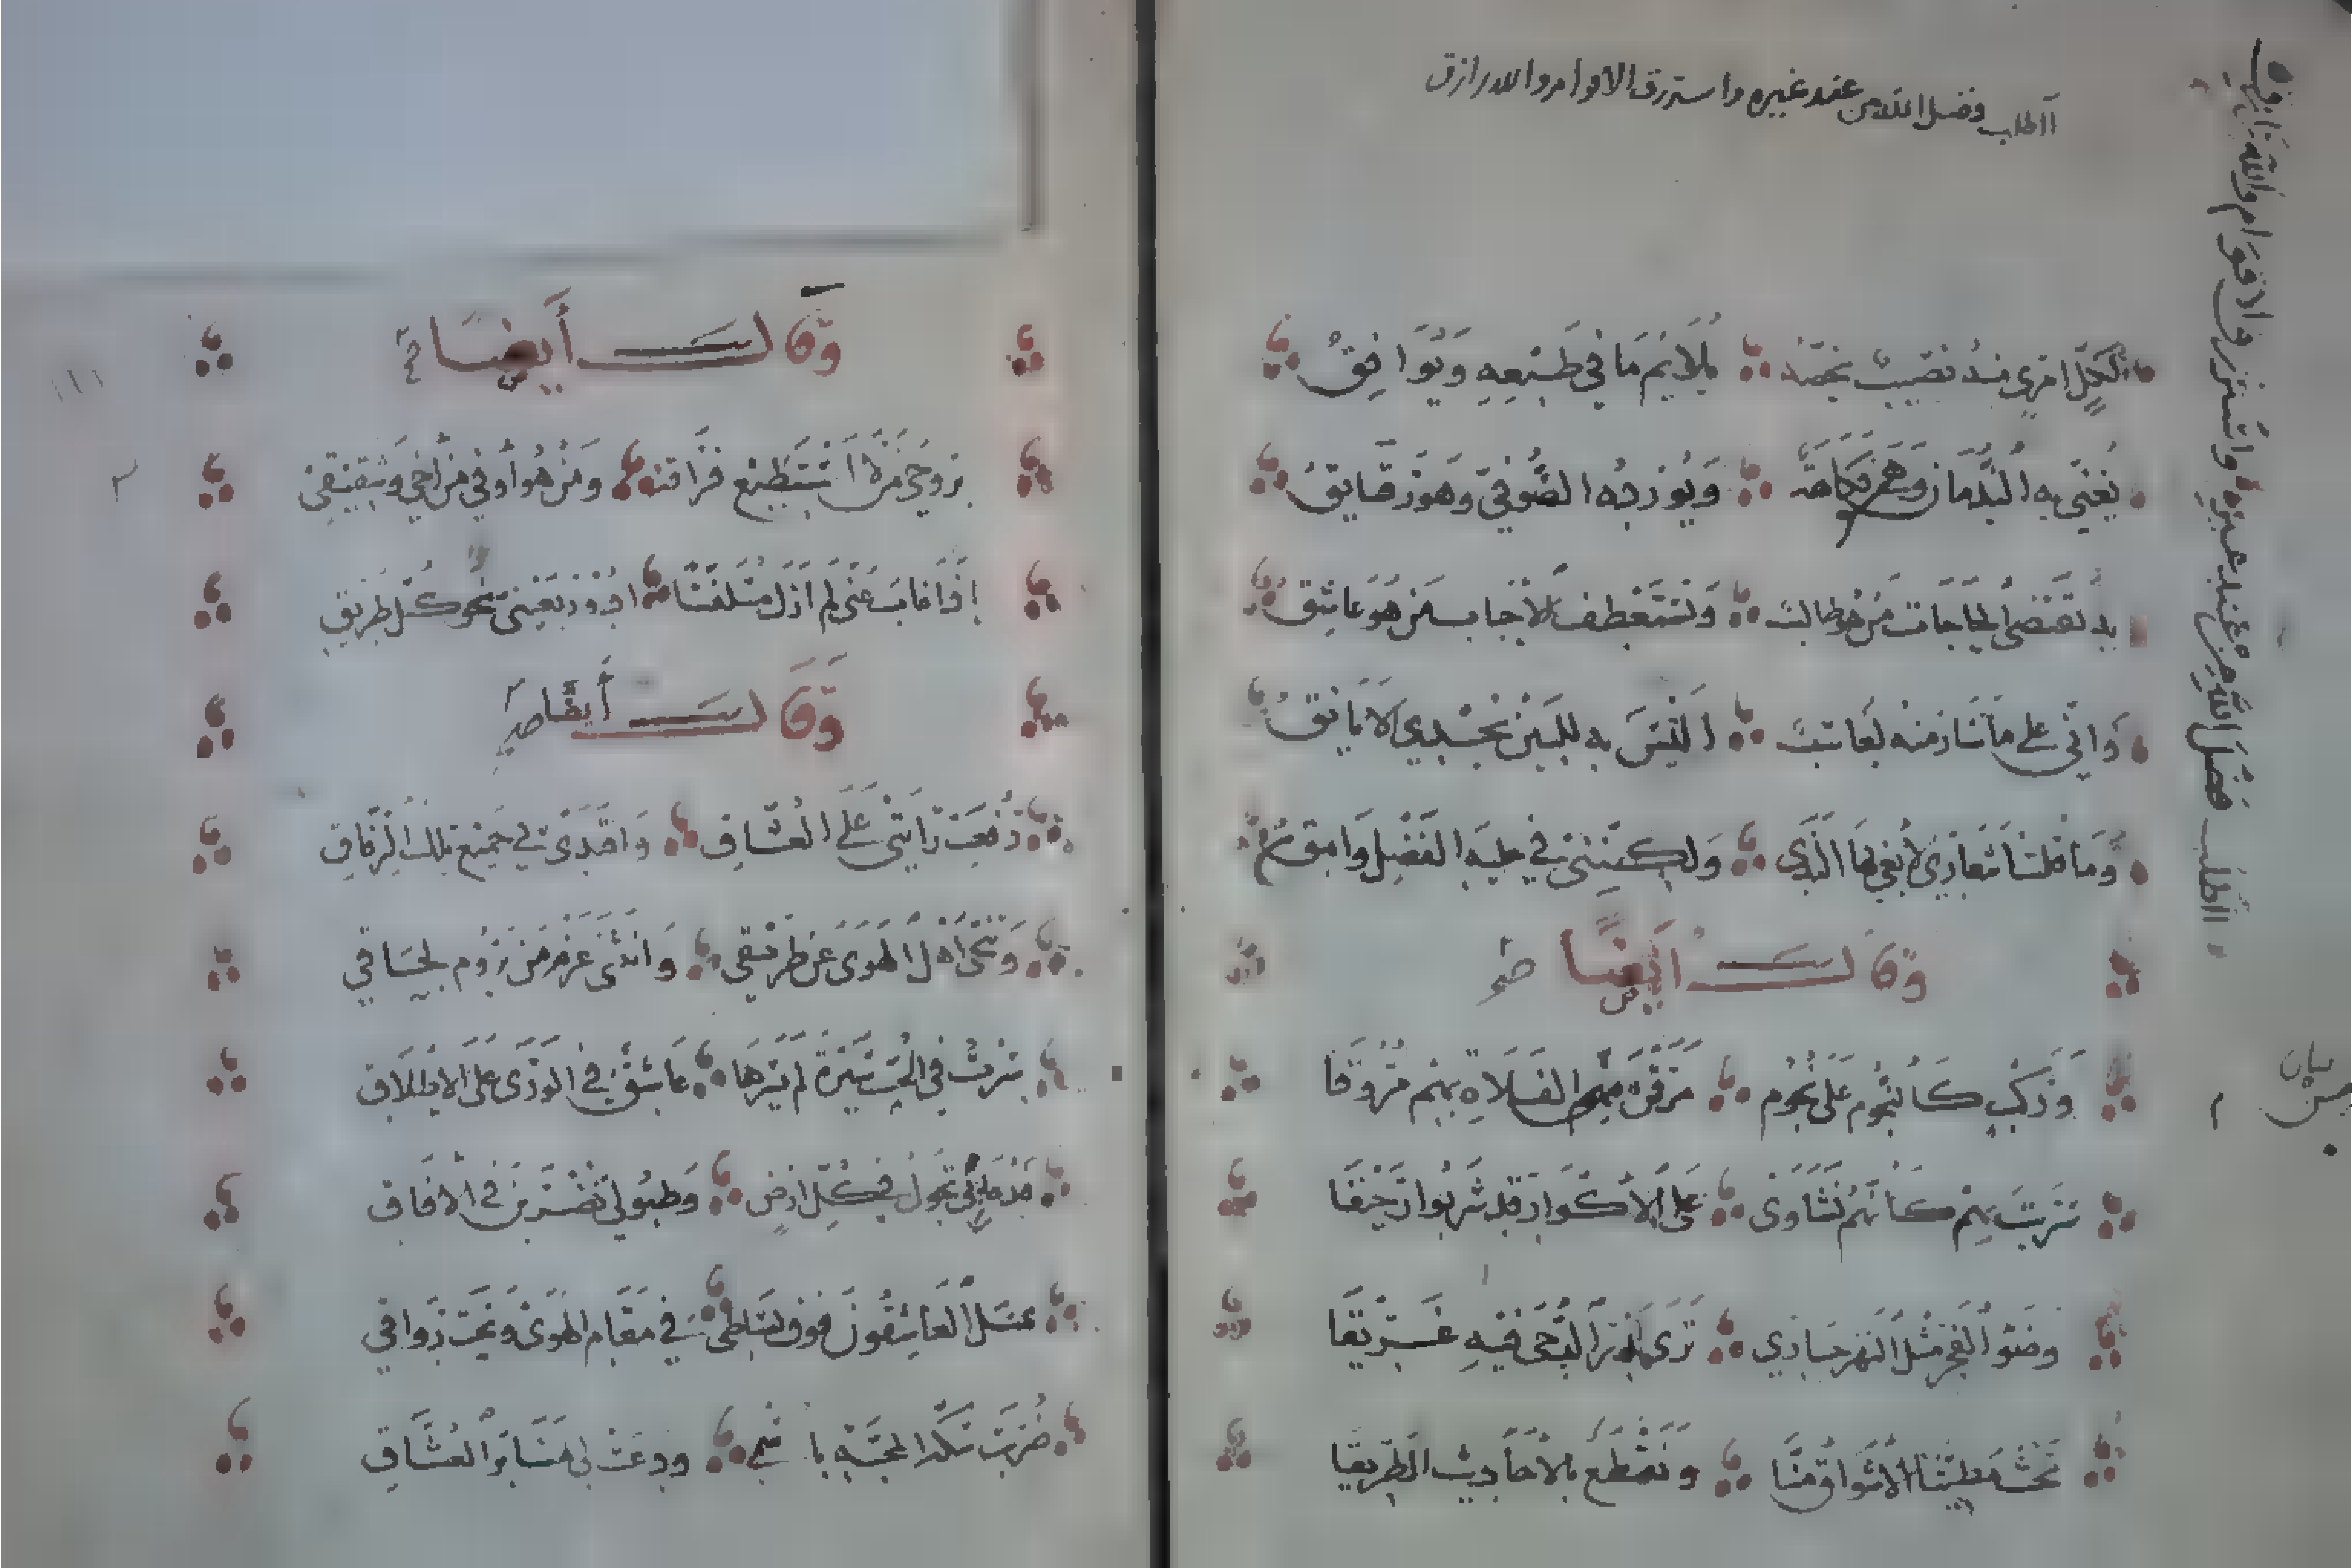 أأطلب فضل الله من عند غيره واسترزق الاقوام والله رازق
لكل امرئ منه نصيب يخصه يلايم ما في طبعه ويوافق
يغني به الندمان وهو فكاهة ويورده الصوفي وهو رقايق
به تقتضى الحاجات من هو طالب وتستعطف الاحباب من هو عاشق
واني على ما سار منه لعاتب اليس به للبين يحدى الايانق
وما قلت اشعاري لابغي بها الندى ولكنني في حلبة الفضل وامق
أأطلب فضل الله من عند غيره واسترزق الاقوام والله رازق
وقال أيضا
وركب كالنجوم على نجوم مرقن من الفلاة بهم مروقا
سريت بهم كانهم نشاوى على الاكوار قد شربوا رحيقا
وضوء الفجر مثل النهر جاري ترى بدر الدجى فيه غريقا
نحث مطيتنا الاشواق منا ونقطع بالاحاديث الطريقا
وقال أيضا
بروحي من لا استطيع فراقه ومن هو أوفى من أخي وشقيقي
إذا غاب عني لم ازل متلفتا ادور بعيني نحو كل طريق
وقال أيضا
رفعت رايتي على العشاق واقتدى بي جميع تلك الرفاق
وتنحى اهل الهوى عن طريقي وانثنى عزم من يروم لحاقي
سرت في الحب سيرة لم يسرها عاشق في الورى على الاطلاق
فدعاتي تجول في كل ارض وطبولي تضربن في الافاق
عسل العاشقون فوق بساطي في مقام الهوى وتحت رواقي
ضربت سكة المحبة باسمي ودعت لي منابر العشاق